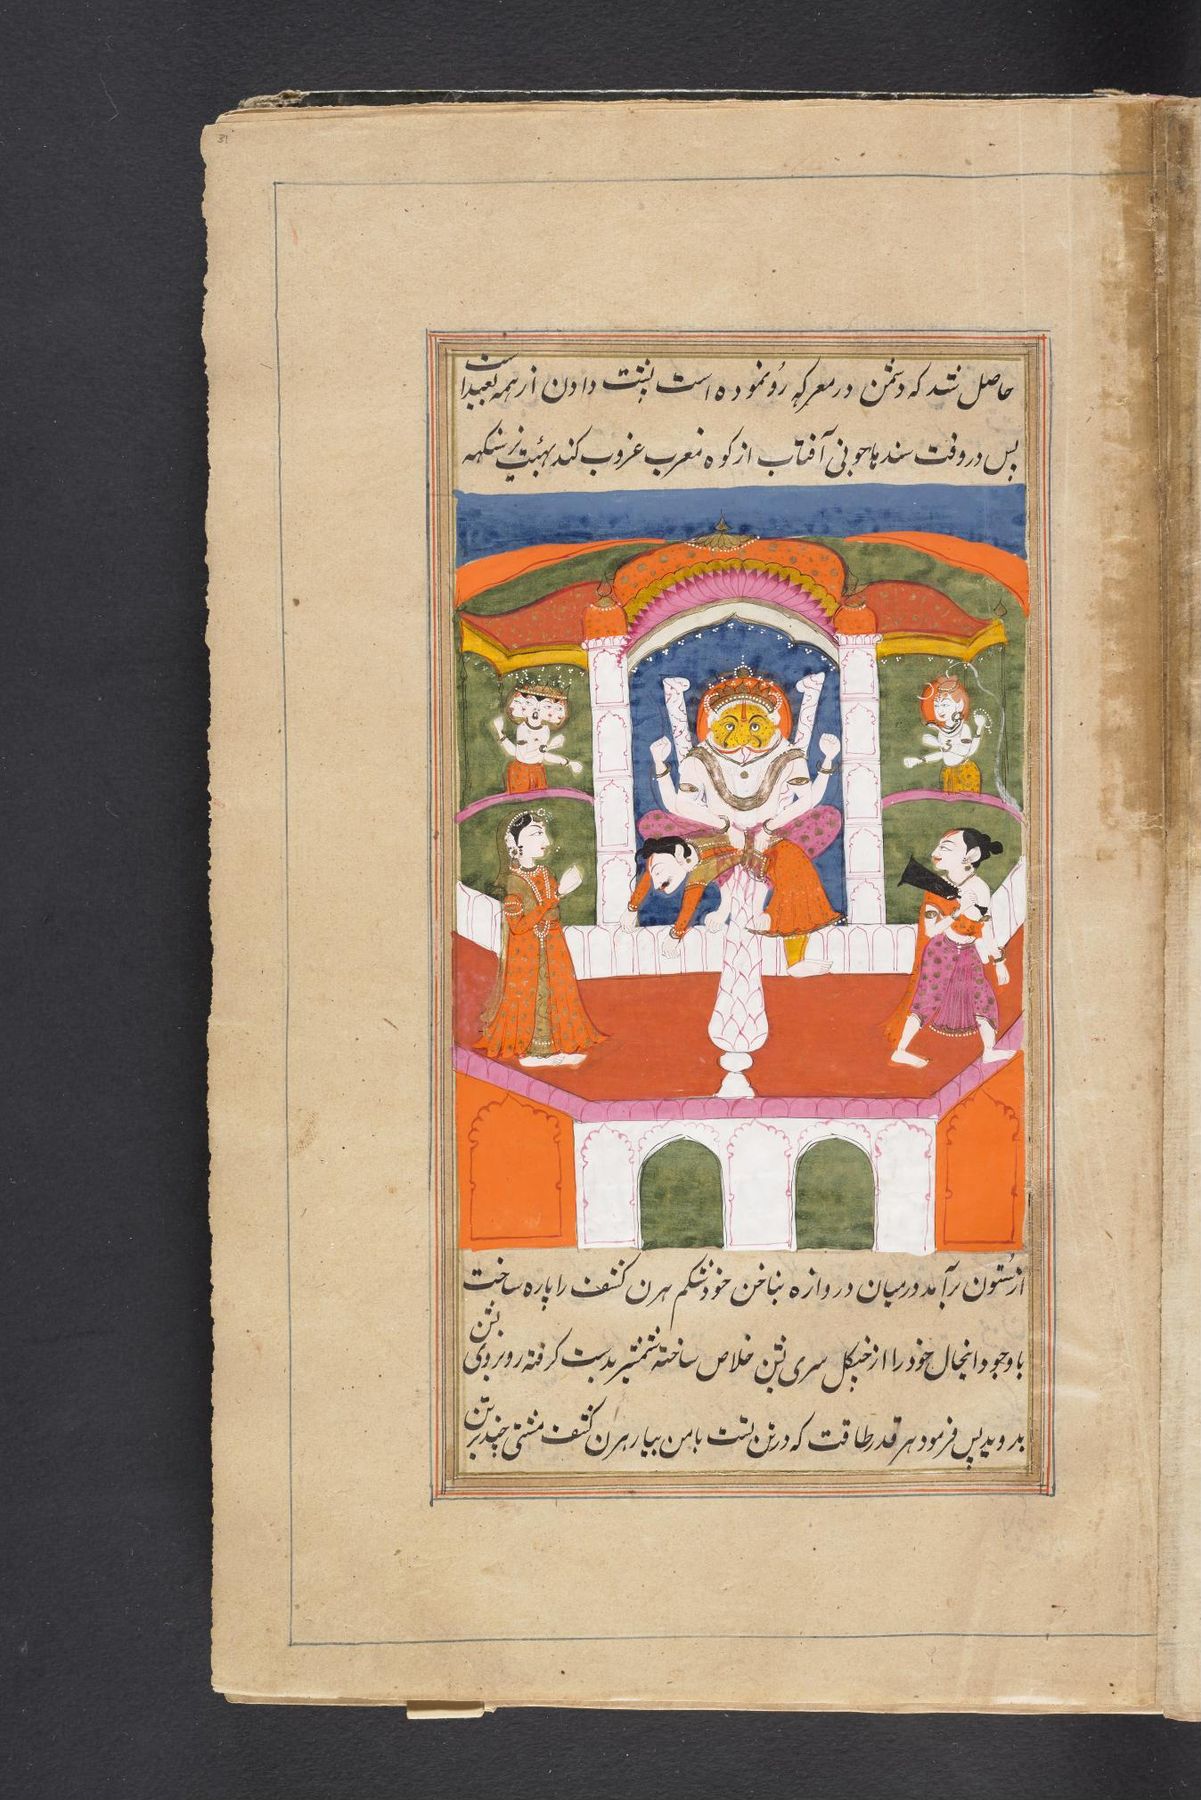 31
حاصل نشد که دشمن در معرکه رونموده است پشت دادن از همه بعید است
پس در وقت سندهاجونی آفتاب از کوه مغرب غروب کند بهیئت نرسنکهه
از ستون برآمد در میان دروازه بناخن خود شکم هرن کشف را پاره ساخت
باوجود اینحال خود را از چنکل سری بشن خلاص ساخته شمشیر بدست کرفته روبروی بشن
بدوید پس فرمود هر قدر طاقت که در تن تست با من بیار هرن کشف مشتی چند بر تن